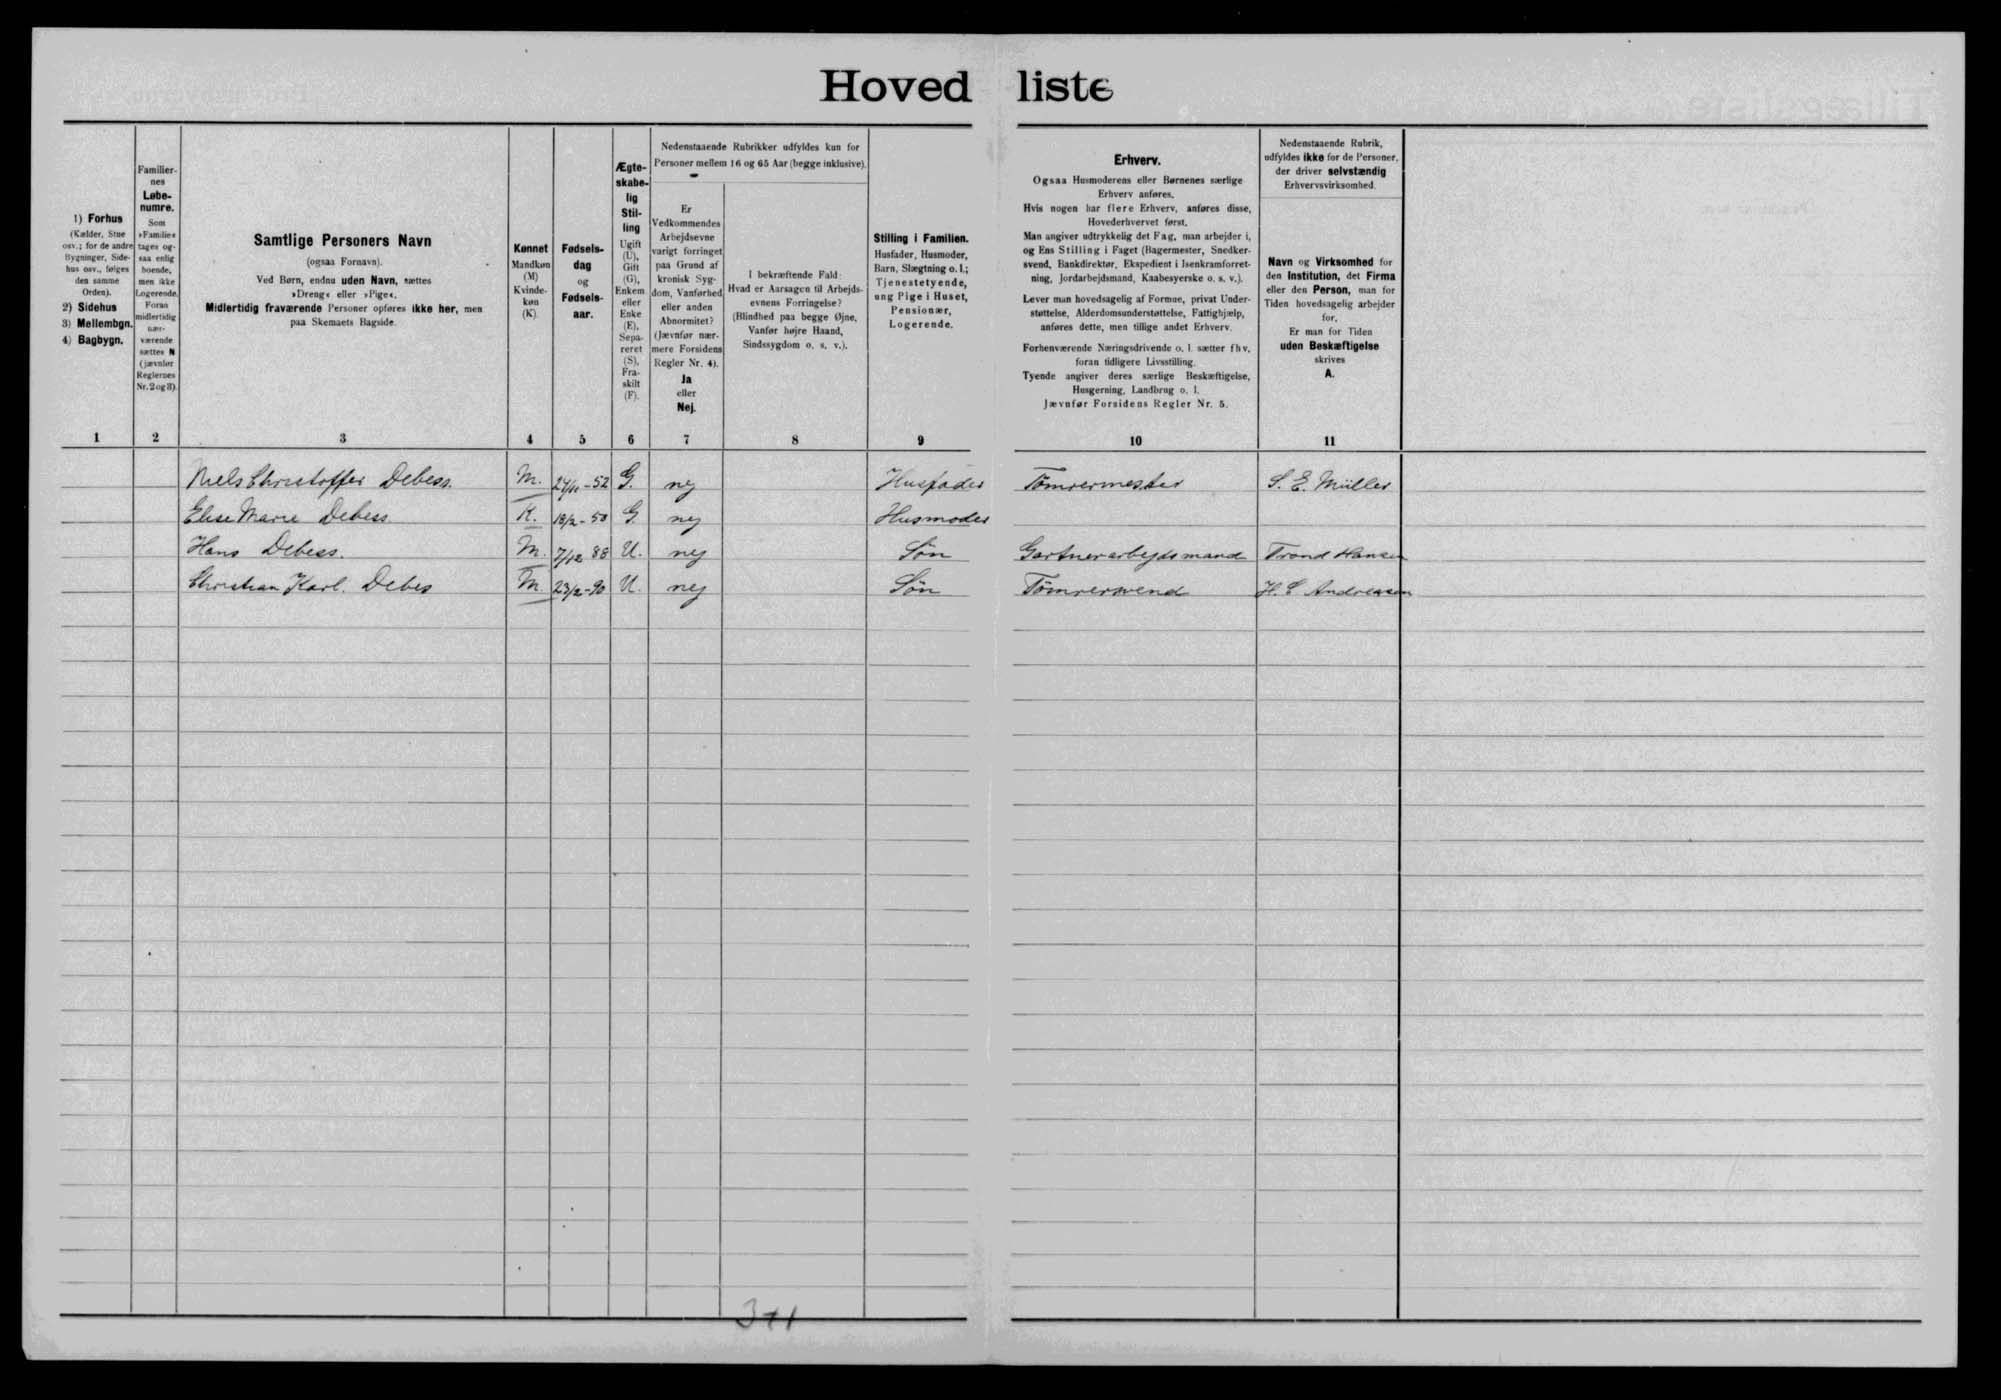 Hoved liste
1) Forhus
(Kælder, Stue
osv.; for de andre
Bygninger, Side-
hus osv., følges
den samme
Orden).
2) Sidehus
3) Mellembgn.
4) Bagbygn.
Familier-
nes
Løbe-
numre.
Som
»Familie«
tages og-
saa enlig
boende,
men ikke
Logerende.
Foran
midlertidig
nær-
værende
sættes N
(jævnfør
Reglernes
Nr. 2 og 3).
Samtlige Personers Navn
(ogsaa Fornavn).
Ved Børn, endnu uden Navn, sættes
»Dreng« eller »Pige«.
Midlertidig fraværende Personer opføres ikke her, men
paa Skemaets Bagside.
Kønnet
Mandkøn
(M)
Kvinde-
køn
(K).
Fødsels-
dag
og
Fødsels-
aar.
Ægte-
skabe-
lig
Stil-
ling
Ugift
(U),
Gift
(G),
Enkem.
eller
Enke
(E),
Sepa-
reret
(S),
Fra-
skilt
(F).
Nedenstaaende Rubrikker udfyldes kun for
Personer mellem 16 og 65 Aar (begge inklusive).
Er
Vedkommendes
Arbejdsevne
varigt forringet
paa Grund af
kronisk Syg-
dom, Vanførhed
eller anden
Abnormitet?
(Jævnfør nær-
mere Forsidens
Regler Nr. 4).
Ja
eller
Nej.
I bekræftende Fald:
Hvad er Aarsagen til Arbejds-
evnens Forringelse?
(Blindhed paa begge Øjne,
Vanfør højre Haand,
Sindssygdom o. s. v.).
Stilling i Familien.
Husfader, Husmoder,
Barn, Slægtning o. l.;
Tjenestetyende,
ung Pige i Huset,
Pensionær,
Logerende.
Erhverv.
Ogsaa Husmoderens eller Børnenes særlige
Erhverv anføres.
Hvis nogen har flere Erhverv, anføres disse,
Hovederhvervet først.
Man angiver udtrykkelig det Fag, man arbejder i,
og Ens Stilling i Faget (Bagermester, Snedker-
svend, Bankdirektør, Ekspedient i Isenkramforret-
ning, Jordarbejdsmand, Kaabesyerske o. s. v.).
Lever man hovedsagelig af Formue, privat Under-
støttelse, Alderdomsunderstøttelse, Fattighjælp,
anføres dette, men tillige andet Erhverv.
Forhenværende Næringsdrivende o. l. sætter fhv.
foran tidligere Livsstilling.
Tyende angiver deres særlige Beskæftigelse,
Husgerning, Landbrug o. l.
Jævnfør Forsidens Regler Nr. 5.
Nedenstaaende Rubrik,
udfyldes ikke for de Personer,
der driver selvstændig
Erhvervsvirksomhed.
Navn og Virksomhed for
den Institution, det Firma
eller den Person, man for
Tiden hovedsagelig arbejder
for.
Er man for Tiden
uden Beskæftigelse
skrives
A.
1 2 3 4 5 6 7 8 9 10 11
Niels Christoffer Debess. M. 24/11-52 G. nej Husfader Tömrermester S. E. Müller
Elise Marie Debess. K. 18/2-50 G. nej Husmoder
Hans Debess. M. 7/12 88 U. nej Sön Gartnerarbejdsmand Trond Hansen
Christian Karl. Debes M. 23/2-90 U. nej Sön Tömrersvend H. C Andreasen